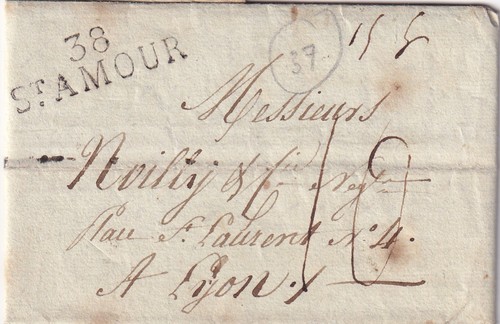 38
ST. AMOUR
37
Messieurs
Noilly & Cie Negts
Place St Laurent No 4.
A Lyon.
12